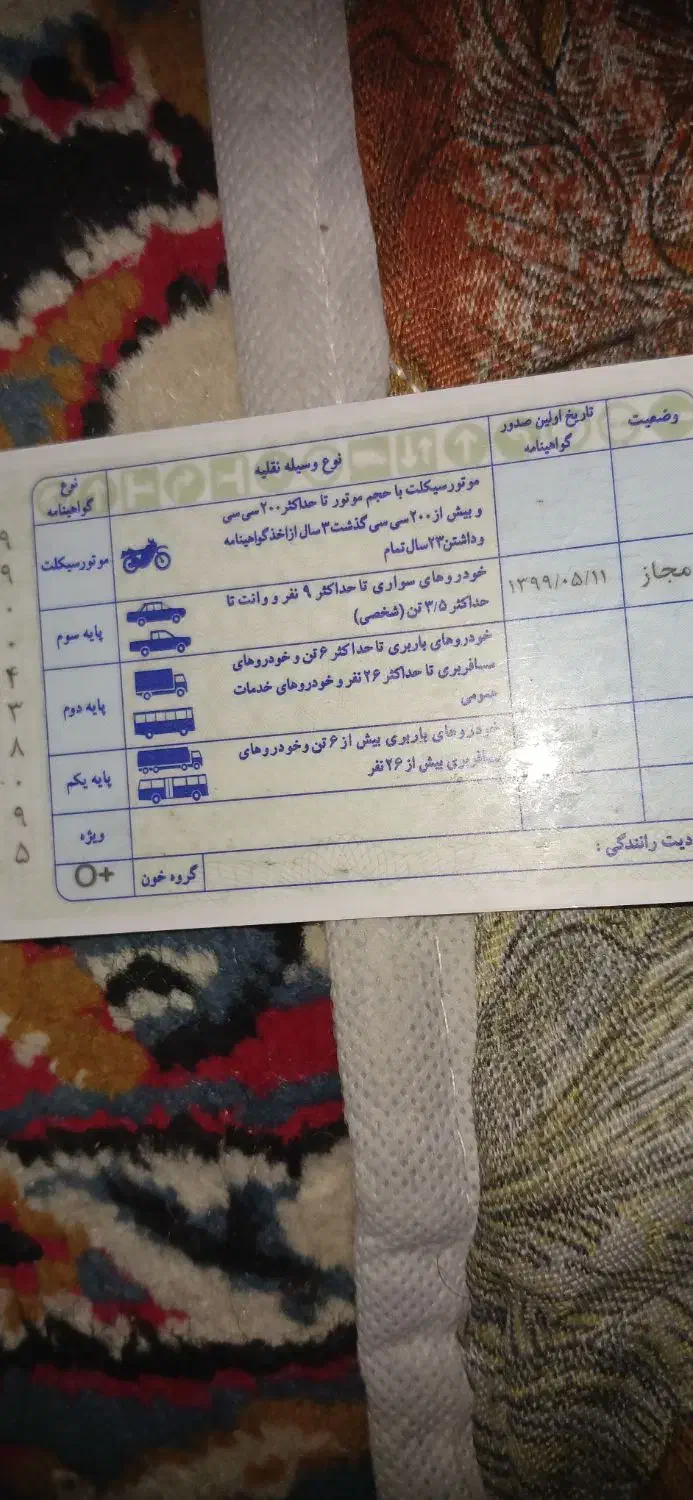 وضعیت
تاریخ اولین صدور
گواهینامه
نوع وسیله نقلیه
نوع
گواهینامه
موتورسیکلت با حجم موتور تا حداکثر ۲۰۰ سی سی
و بیش از ۲۰۰ سی سی گذشت ۳ سال از اخذ گواهینامه
و داشتن ۲۳ سال تمام
موتورسیکلت
مجاز
۱۳۹۹/۰۵/۱۱
خودروهای سواری تا حداکثر ۹ نفر و وانت تا
حداکثر ۳/۵ تن (شخصی)
پایه سوم
خودروهای باربری تا حداکثر ۶ تن و خودروهای
مسافربری تا حداکثر ۲۶ نفر و خودروهای خدمات
عمومی
پایه دوم
خودروهای باربری بیش از ۶ تن و خودروهای
مسافربری بیش از ۲۶ نفر
پایه یکم
ویژه
دیت رانندگی :
گروه خون
O+
۹
۹
۰
۰
۴
۳
۸
۰
۹
۵